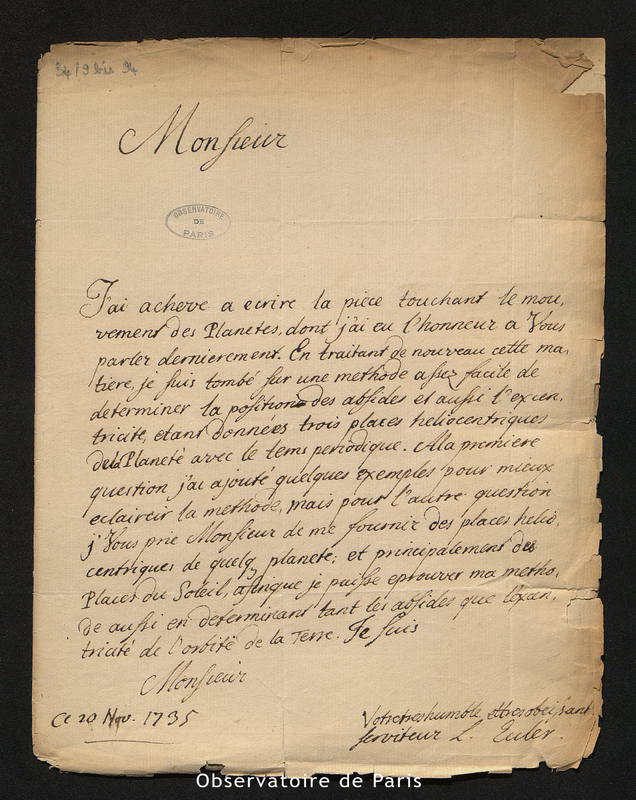 Monsieur
OBSERVATOIRE
DE
PARIS
J'ai achevé a ecrire la piece touchant le mou,
vement des Planetes, dont j'ai eu l'honneur a Vous
parler dernierement. En traitant de nouveau cette ma,
tiere, je suis tombé sur une methode assez facile de
determiner la position des absides et aussi l'excen,
tricité, etant données trois places heliocentriques
de la Planeté avec le tems periodique. A la premiere
question j'ai ajouté quelques exemples pour mieux
eclaircir la methode, mais pour l'autre question
j'Vous prie Monsieur de me fournir des places helio,
centriques de quelq planete; et principalement des
Places du Soleil, afinque je puisse eprouver ma metho,
de aussi en determinant tant les absides que l'excen,
tricité de l'orbite de la Terre. Je suis
Monsieur
Ce 20 Nov. 1735
Votre tres humble et tres obeissant
serviteur L. Euler.
Observatoire de Paris